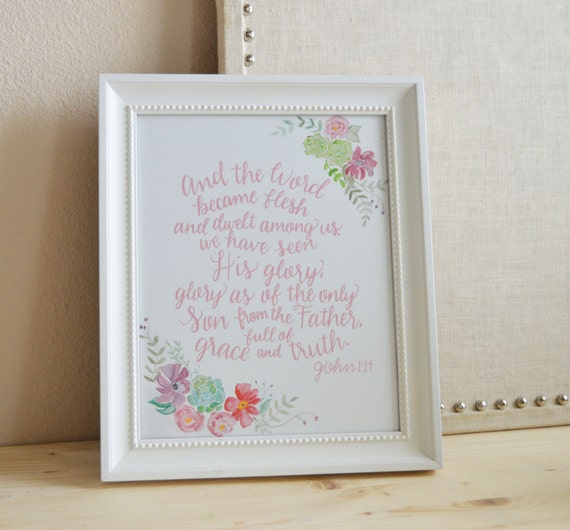 And the Word
became flesh
and dwelt among us,
we have seen
His glory,
glory as of the only
Son from the Father,
full of
grace and truth.
John 1:14